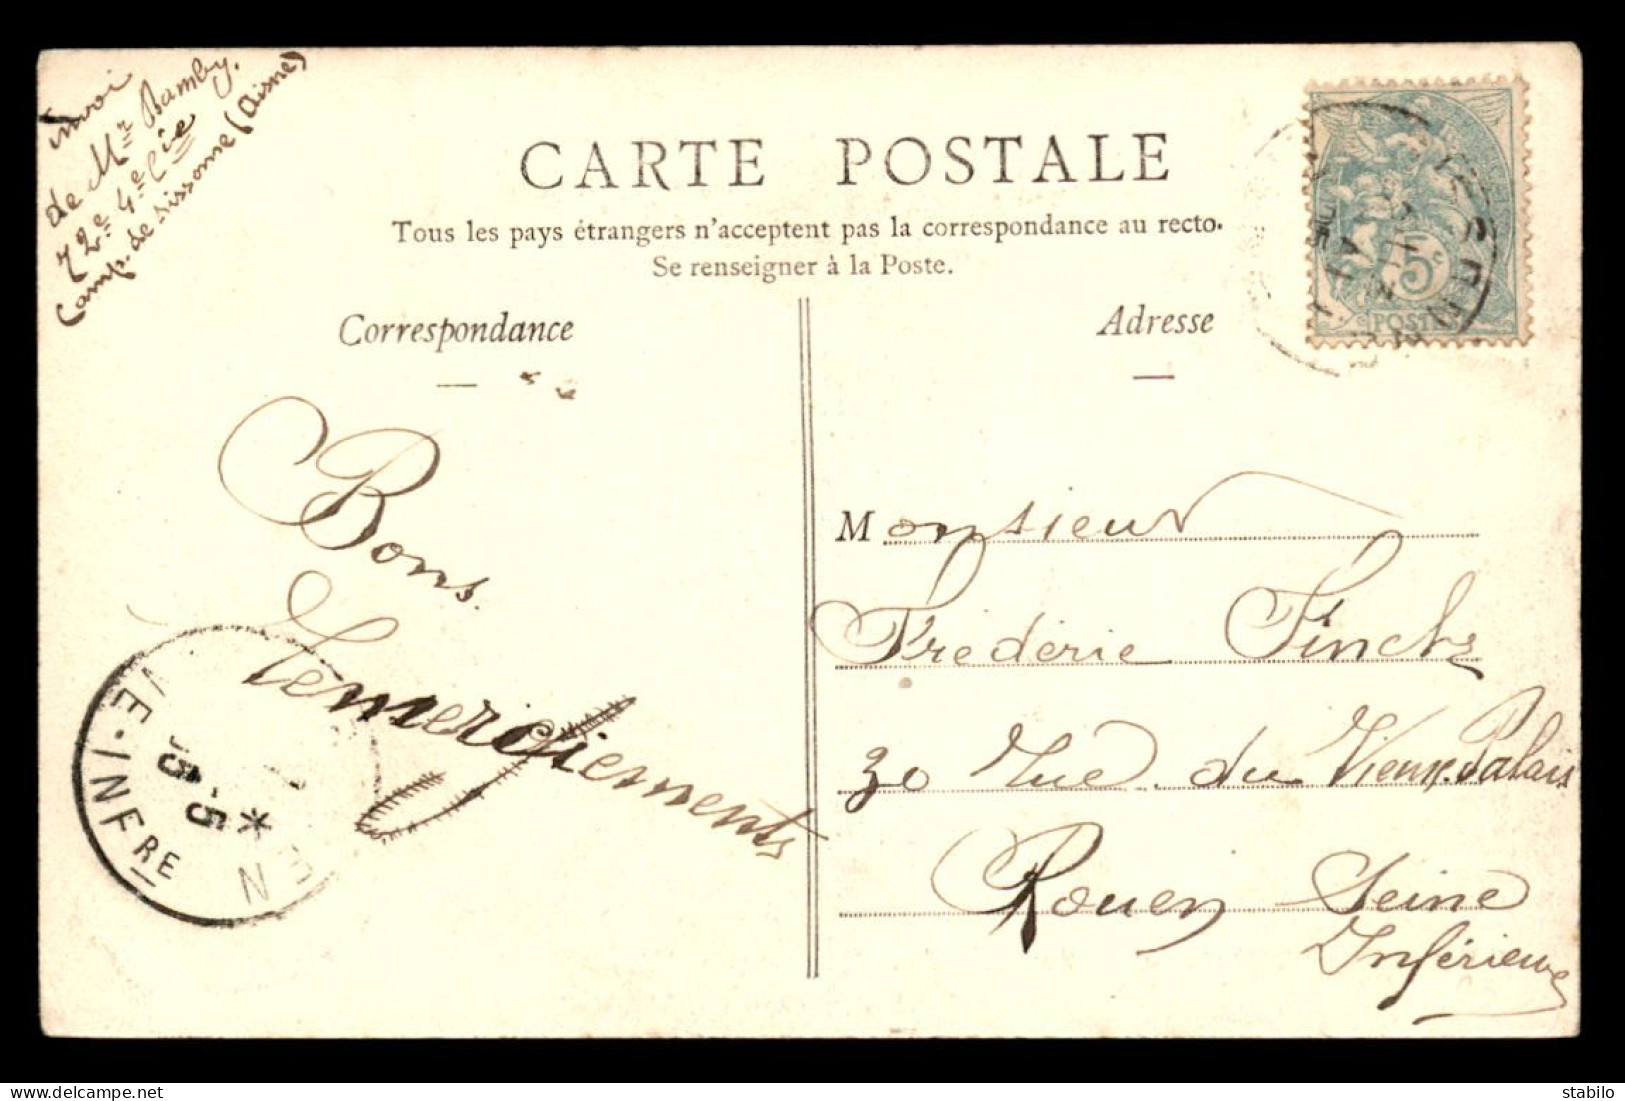 envoi
de Mr Bamby.
72e 4e Cie
Camp. de Sissonne (Aisne)
CARTE POSTALE
Tous les pays étrangers n'acceptent pas la correspondance au recto.
Se renseigner à la Poste.
Correspondance
Adresse
5c
POSTE
Bons
Remerciements
Monsieur
Fréderic Finck
30 Rue du Vieux Palais
Rouen Seine
Inférieure
IE-INFRE
5 -5
EN
delcampe.net
stabilo